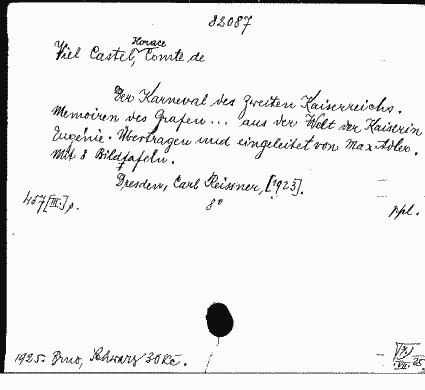 82087
Viel Castel, Horace Comte de
Der Karneval des zweiten Kaiserreichs.
Memoiren des Grafen... aus der Welt der Kaiserin
Eugénie. Übertragen und eingeleitet von Max Adler.
Mit 8 Bildtafeln.
Dresden, Carl Reissner, [1923].
457 [III.] p. 8° ppl.
1925: Brno, Schwarz 30 Kč.
VII. 25